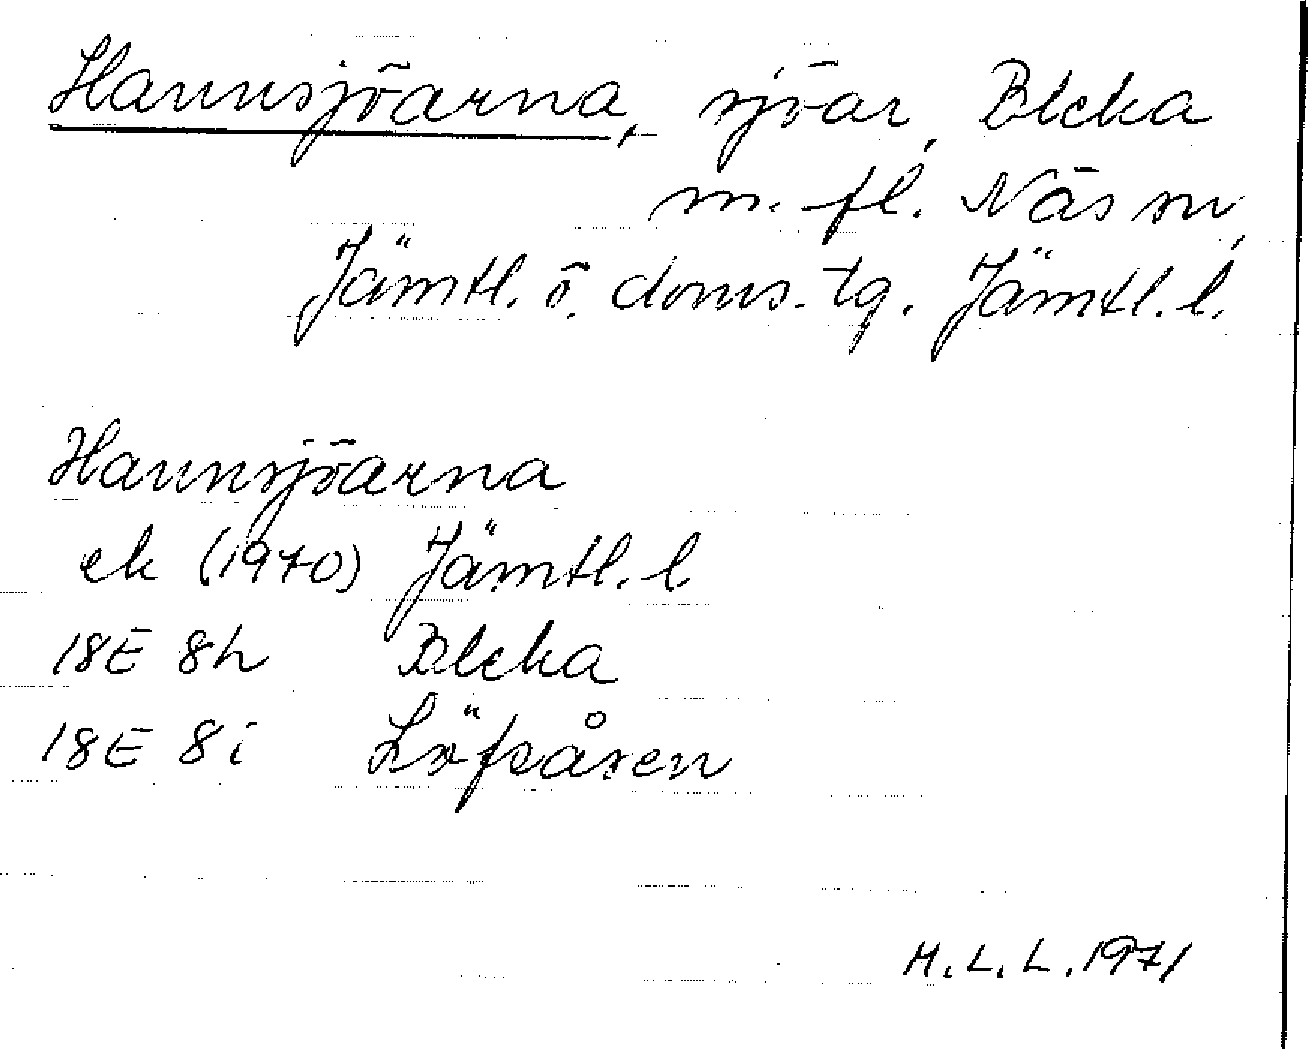 Hannsjöarna, sjöar, Bleka
m. fl. Näs sn,
Jämtl. ö. doms. tg. Jämtl. l.
Hannsjöarna
ek (1970) Jämtl. l.
18E 8h Bleka
18E 8i Löfsåsen
H.L.L. 1971